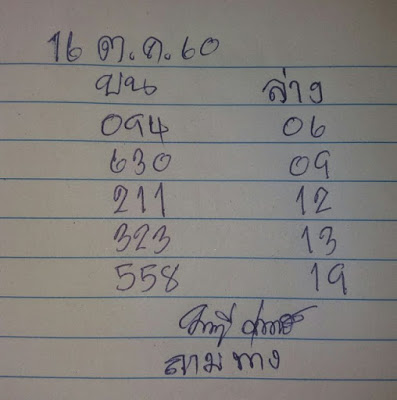 16 ต.ค.60
บน ล่าง
094 06
630 09
211 12
323 13
558 19
สามทาง